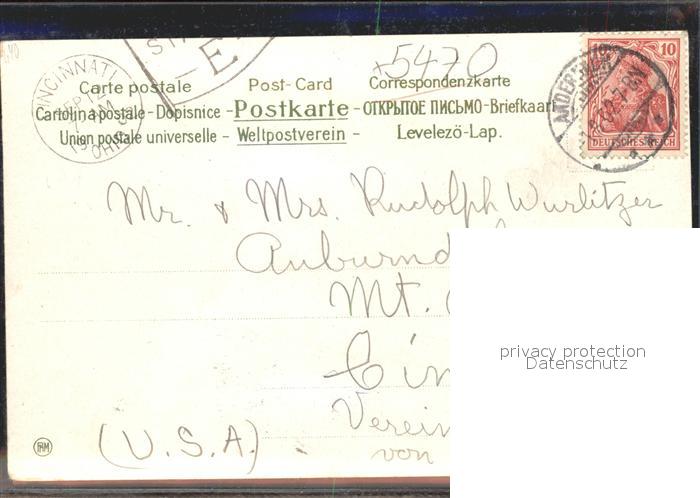 5470
Carte postale Post-Card Correspondenzkarte
Cartolina postale - Dopisnice - Postkarte - ОТКРЫТОЕ ПИСЬМО - Briefkaart
Union postale universelle - Weltpostverein - Levelező-Lap.
CINCINNATI,
OHIO
E
10
DEUTSCHES REICH
ANDERNACH
Mr. & Mrs. Rudolph Wurlitzer
Auburn
Mt.
Cin
Verein
(U.S.A.) von
privacy protection
Datenschutz